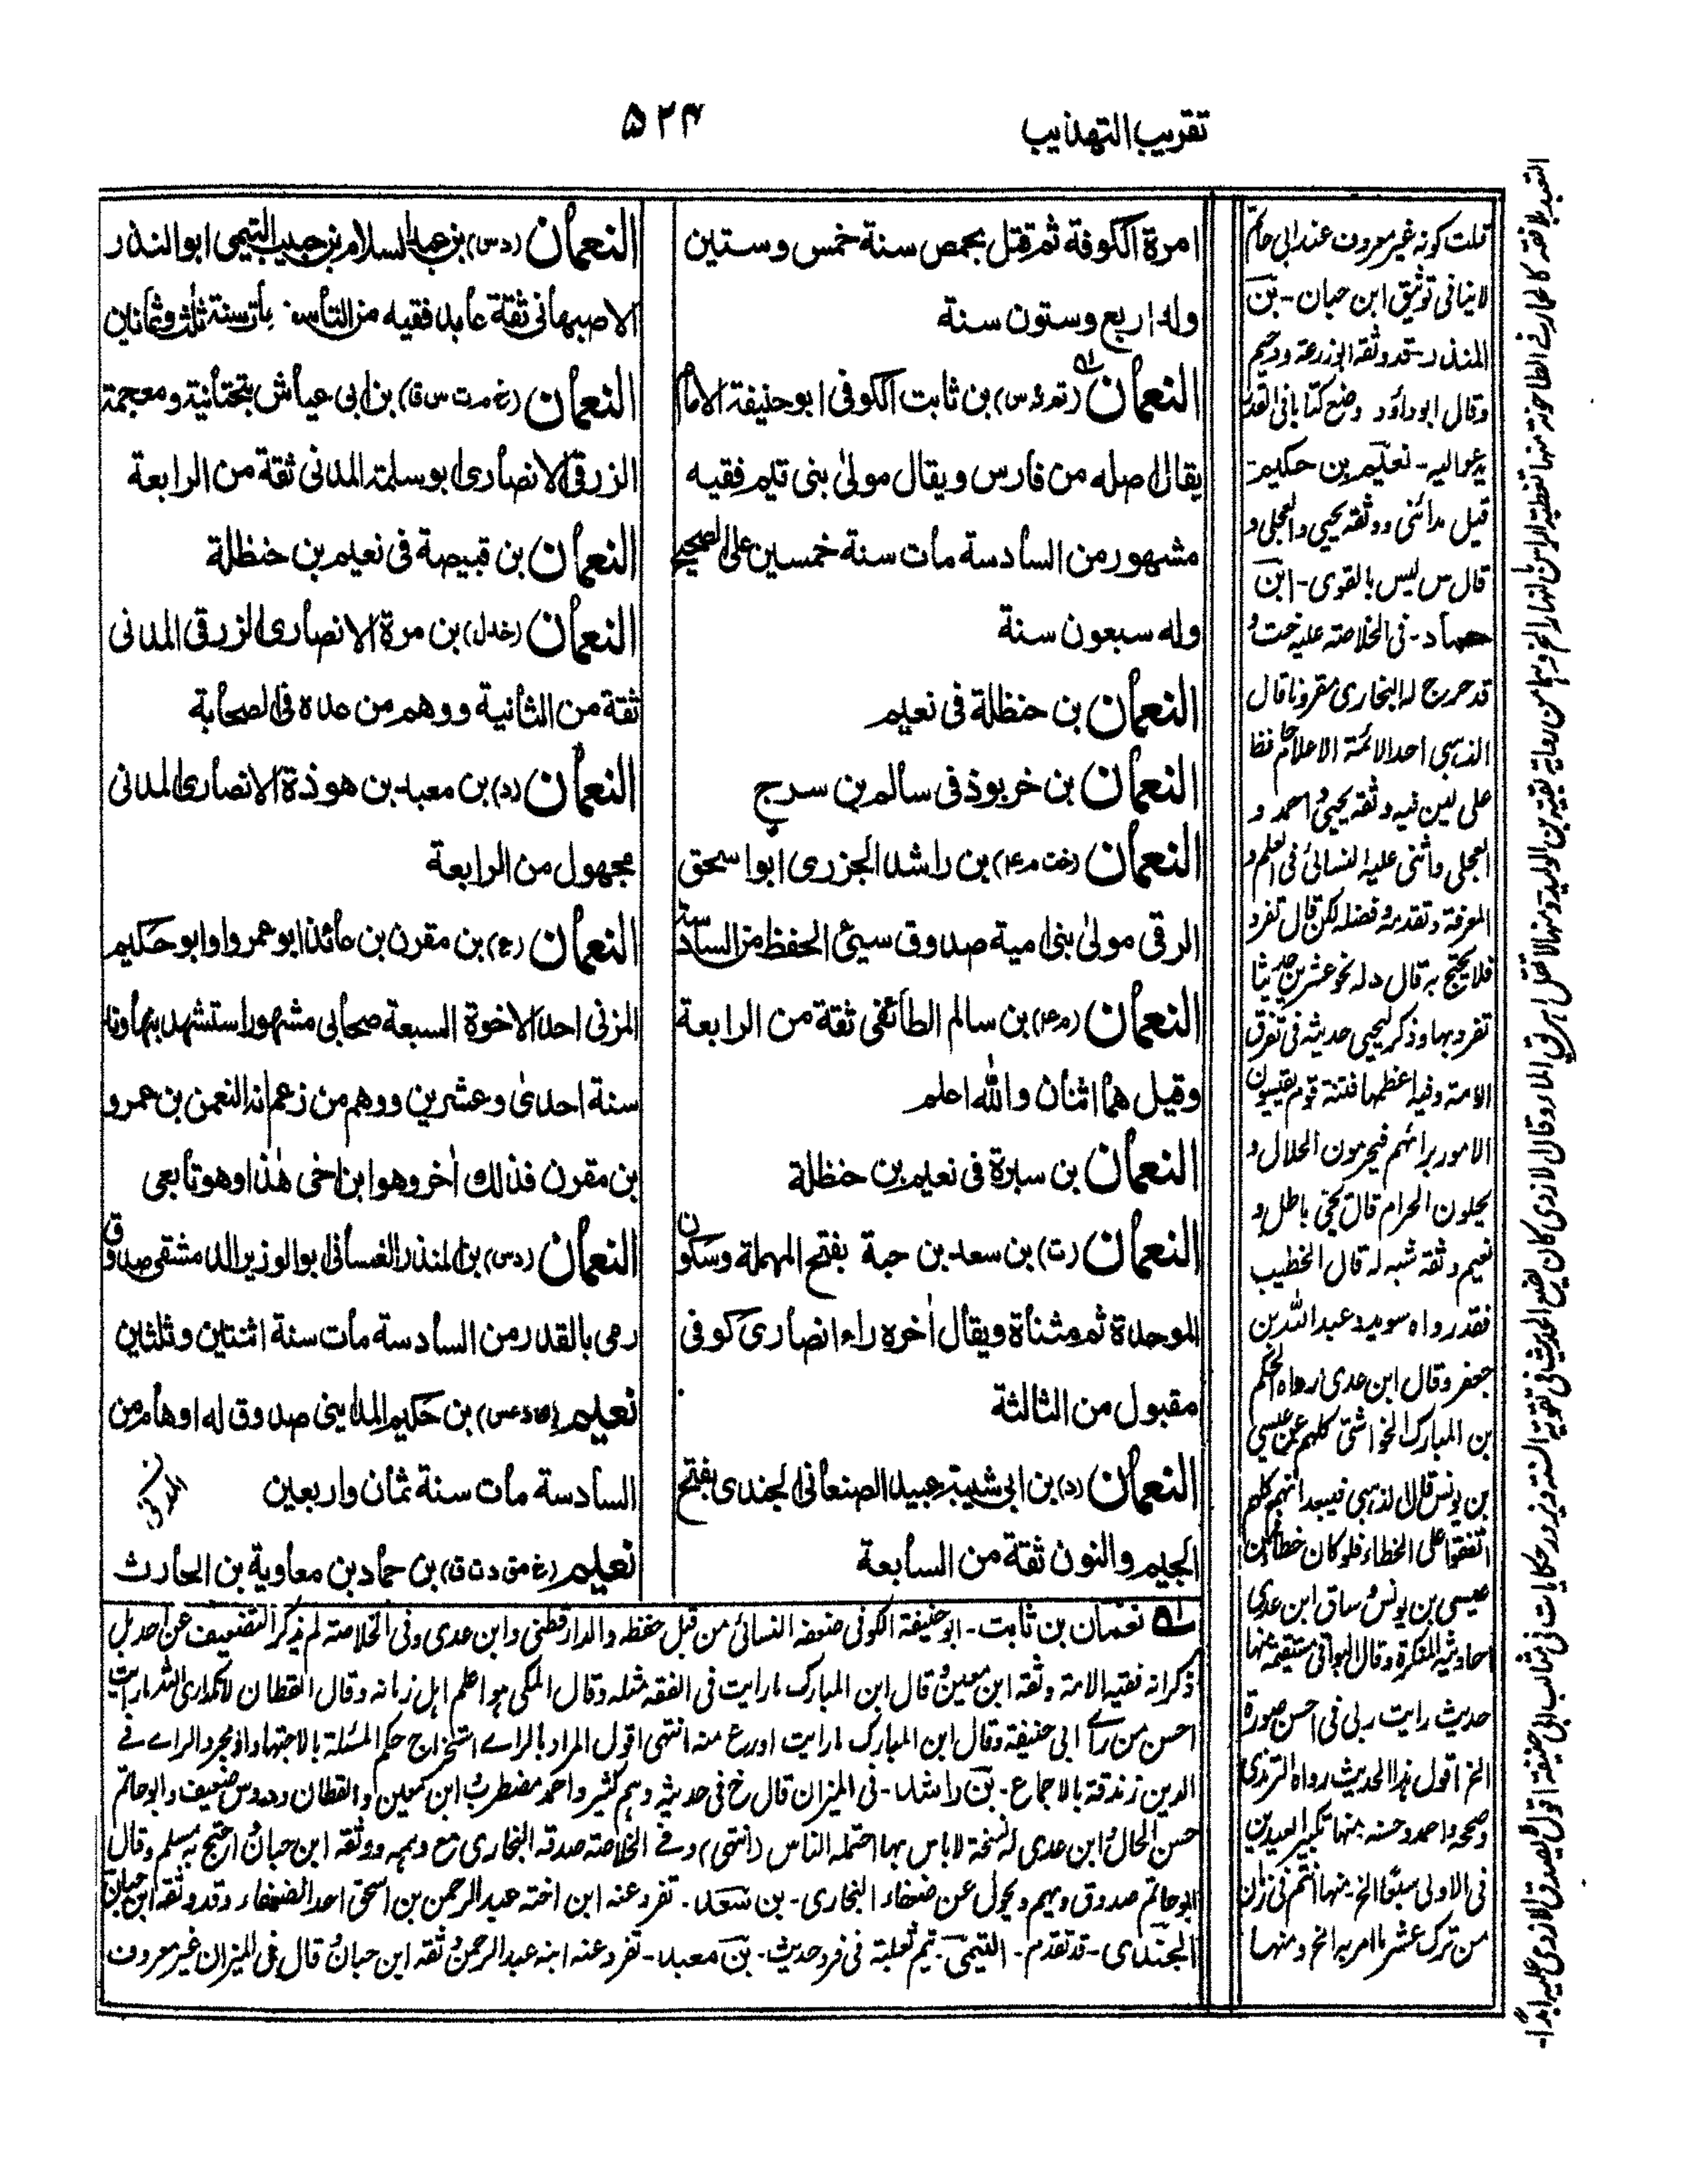 تقريب التهذيب
۵۲۴
امرة الكوفة ثم قتل بحمص سنة خمس وستين
وله اربع وستون سنة
النعمان بن ثابت الكوفى ابو حنيفة الامام
يقال اصله من فارس ويقال مولىٰ بنى تيم فقيه
مشهور من السادسة مات سنة خمسين على الصحيح
وله سبعون سنة
النعمان بن حنظلة فى نعيم
النعمان بن خربوذ فى سالم بن سرج
النعمان (خت م عه) بن راشد الجزرى ابو اسحق
الرقى مولىٰ بنى امية صدوق سيئ الحفظ من السادسة
النعمان (م عه) بن سالم الطائفى ثقة من الرابعة
وقيل هما اثنان والله اعلم
النعمان بن سبرة فى نعيم بن حنظلة
النعمان (ت) بن سعد بن حبة بفتح المهملة وسكون
الموحدة ثم مثناة ويقال أخره راء انصارى كوفى
مقبول من الثالثة
النعمان (د) بن ابى شيبة عبيد الصنعانى الجندى بفتح
الجيم والنون ثقة من السابعة
النعمان (د س) بن عبد السلام بن حبيب التيمى ابو المنذر
الاصبهانى ثقة عابد فقيه من التاسعة مات سنة ثلث وثمانين
النعمان (خ م ت س ق) بن ابى عياش بتحتانية ومعجمة
الزرقى الانصارى ابو سلمة المدنى ثقة من الرابعة
النعمان بن قبيصة فى نعيم بن حنظلة
النعمان بن مرة الانصارى الزرقى المدنى
ثقة من الثانية ووهم من عده فى الصحابة
النعمان (د) بن معبد بن هوذة الانصارى المدنى
مجهول من الرابعة
النعمان (ع) بن مقرن بن عائذ ابو عمرو او ابو حكيم
المزنى احد الاخوة السبعة صحابى مشهور استشهد بنهاوند
سنة احدىٰ وعشرين ووهم من زعم انه النعمن بن عمرو
بن مقرن فذلك أخر وهو ابن اخى هٰذا وهو تابعى
النعمان (د س) بن المنذر الغسانى ابو الوزير الدمشقى صدوق
رمى بالقدر من السادسة مات سنة اثنتين وثلثين
نعيم بن حكيم المداينى صدوق له اوهام من
السادسة مات سنة ثمان واربعين
نعيم (خ مق د ت ق) بن حماد بن معاوية بن الحارث
نعمان بن ثابت - ابو حنيفة الكوفى ضعفه النسائى من قبل حفظه والدارقطنى وابن عدى وفى الخلاصته لم يذكر التضعيف عن احد بل
ذكر انه فقيه الامة وثقه ابن معين قال ابن المبارك ما رايت فى الفقه مثله وقال المكى هو اعلم اهل زمانه وقال القطان لا نكذب الله ما رايت
احسن من رأے ابى حنيفة وقال ابن المبارك ما رايت اورع منه انتهى اقول المراد بالراے استخراج حكم المسئلة بالاجتهاد اذ مجرد الراے فے
الدين زندقة بالاجماع - بن راشد - فى الميزان قال خ فى حديثه وهم كثير واحمد مضطرب ابن معين والقطان ود وس ضعيف وابو حاتم
حسن الحال ابن عدى له نسخة لا باس بها احتمله الناس (انتهى) وفے الخلاصته صدقه البخارى مع وهمه ووثقه ابن حبان احتج به مسلم وقال
ابو حاتم صدوق وهم ويحول عن ضعفاء البخارى - بن سعد - تفرد عنه ابن اخته عبد الرحمن بن اسحق احد الضعفاء وقد وثقه ابن حبان
الجندى - قد تقدم - التيمى - تيم ثعلبة فى فرد حديث - بن معبد - تفرد عنه ابنه عبد الرحمن ثقه ابن حبان قال فى الميزان غير معروف
قلت كونه غير معروف عند ابى حاتم
لا ينافى توثيق ابن حبان - بن
المنذر - قد وثقه ابو زرعة ودحيم
وقال ابو داؤد وضع كتابا فى القدر
يدعو اليه - نعيم بن حكيم -
قيل مدائنى ووثقه يحيى والعجلى و
قال س ليس بالقوى - ابن
حماد - فى الخلاصته عليه خت و
قد خرج له البخارى مقرونا قال
الذهبى احد الائمة الاعلام حافظا
على لين فيه وثقه يحيى احمد و
العجلى واثنى عليه النسائى فى العلم و
المعرفة وتقدمه وفضله لكن قال تفرد
فلا يحتج به قال د له نحو عشرين حديثا
تفرد بها وذكر ليحيى حديثه فى تفرق
الامة وفيه اعظمها فتنة قوم يقيسون
الامور برائهم فيحرمون الحلال و
يحلون الحرام قال يحيى باطل و
نعيم وثقه شبه له قال الخطيب
فقد رواه سويد وعبد الله بن
جعفر وقال ابن عدى رواه الحكم
بن المبارك الخواشتى كلهم عن عيسى
بن يونس قال الذهبى فيبعد انهم كلهم
اتفقوا على الخطاء فلو كان خطأ من
عيسى بن يونس ساق ابن عدى
احاديثه المنكرة وقال البواقى مستقيمة منها
حديث رايت ربى فى احسن صورة
الخ اقول هذا الحديث رواه الترمذى
وصححه واحمد وحسنه منها تكبير العيدين
فى الاولى سبعا الخ منها انتم فى زمان
من ترك عشر ما امر به الخ ومنها